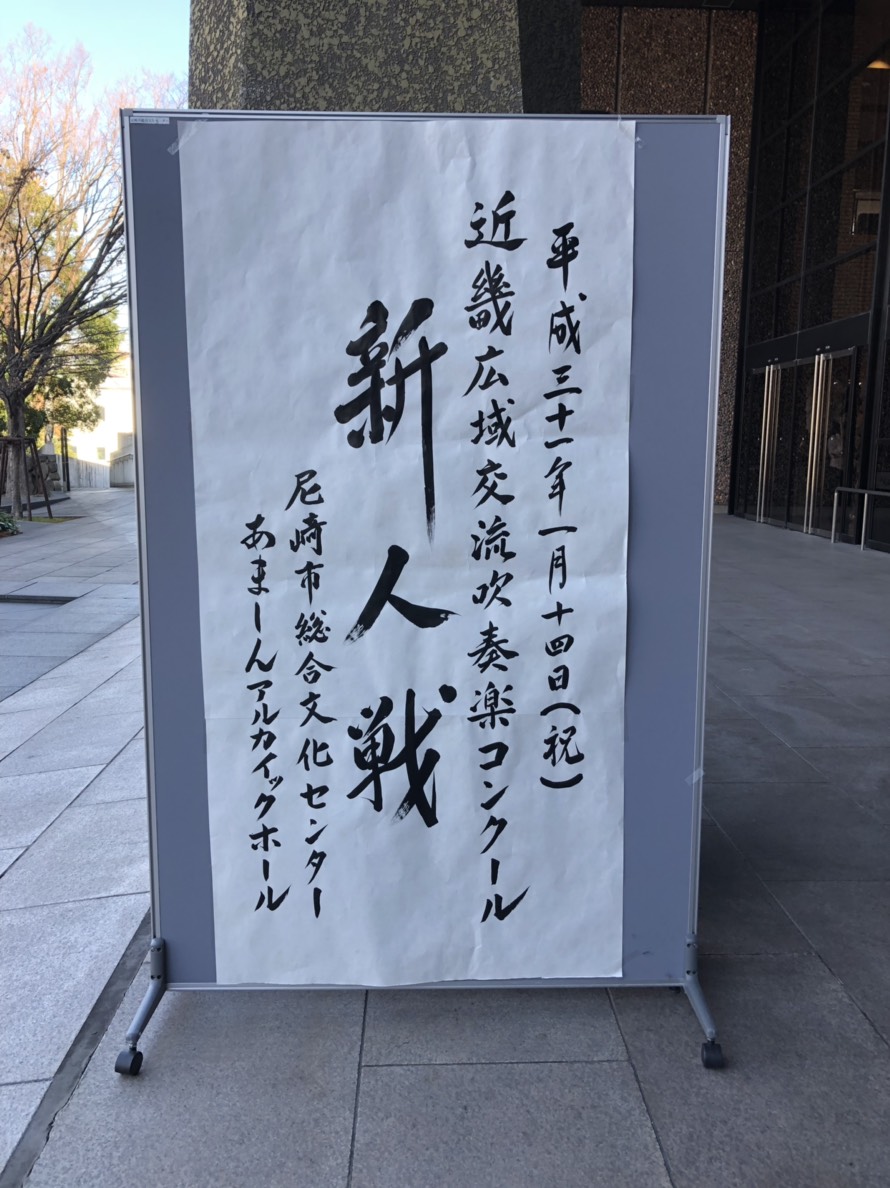 平成三十一年一月十四日(祝)
近畿広域交流吹奏楽コンクール
新人戦
尼崎市総合文化センター
あましんアルカイックホール